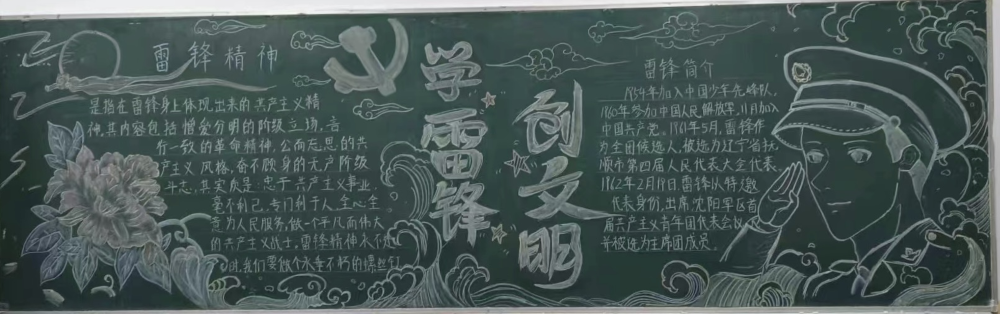 雷锋精神
是指在雷锋身上体现出来的共产主义精
神,其内容包括憎爱分明的阶级立场、言
行一致的革命精神、公而忘私的共
产主义风格,奋不顾身的无产阶级
斗志,其实质是:忠于共产主义事业,
毫不利己、专门利于人,全心全
意为人民服务,做一个平凡而伟大
的共产主义战士,雷锋精神永不过
时,我们要做个永垂不朽的螺丝钉
学雷锋
创文明
雷锋简介
1954年加入中国少年先锋队,
1960年参加中国人民解放军,11月加入
中国共产党。1961年5月,雷锋作
为全团候选人,被选为辽宁省抚
顺市第四届人民代表大会代表。
1962年2月19日雷锋以特邀
代表身份,出席沈阳军区首
届共产主义青年团代表会议
并被选为主席团成员。